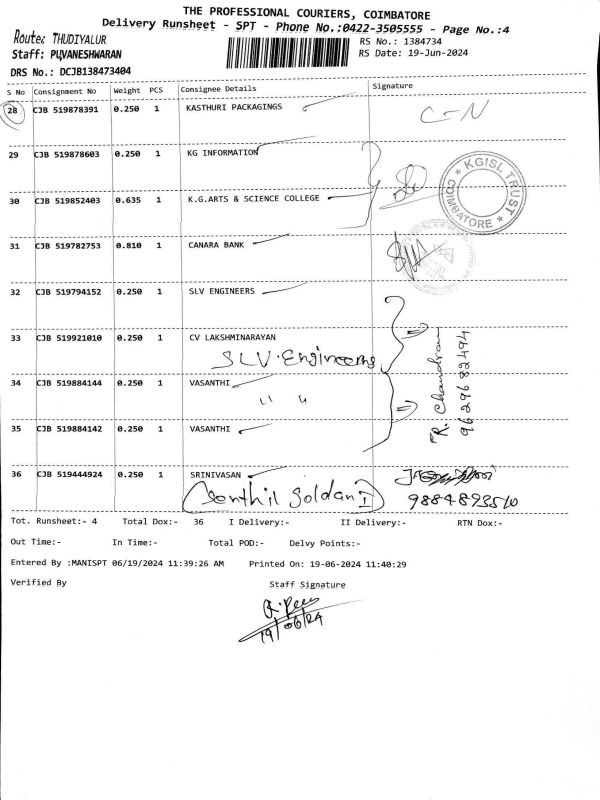 THE PROFESSIONAL COURIERS, COIMBATORE
Delivery Runsheet - SPT - Phone No.:0422-3505555 - Page No.:4
Route: THUDIYALUR
RS No.: 1384734
Staff: PUVANESHWARAN
RS Date: 19-Jun-2024
DRS No.: DCJB138473404
S No Consignment No Weight PCS Consignee Details Signature
28 CJB 519878391 0.250 1 KASTHURI PACKAGINGS C-N
29 CJB 519878603 0.250 1 KG INFORMATION
KGISL TRUST
COIMBATORE
30 CJB 519852403 0.635 1 K.G.ARTS & SCIENCE COLLEGE
31 CJB 519782753 0.810 1 CANARA BANK
32 CJB 519794152 0.250 1 SLV ENGINEERS
33 CJB 519921010 0.250 1 CV LAKSHMINARAYAN
SLV.Engineering
R. Chandran
9629682494
34 CJB 519884144 0.250 1 VASANTHI
" "
35 CJB 519884142 0.250 1 VASANTHI
36 CJB 519444924 0.250 1 SRINIVASAN
9884893510
Tot. Runsheet:- 4 Total Dox:- 36 I Delivery:- II Delivery:- RTN Dox:-
Out Time:- In Time:- Total POD:- Delvy Points:-
Entered By :MANISPT 06/19/2024 11:39:26 AM Printed On: 19-06-2024 11:40:29
Verified By Staff Signature
19/06/24